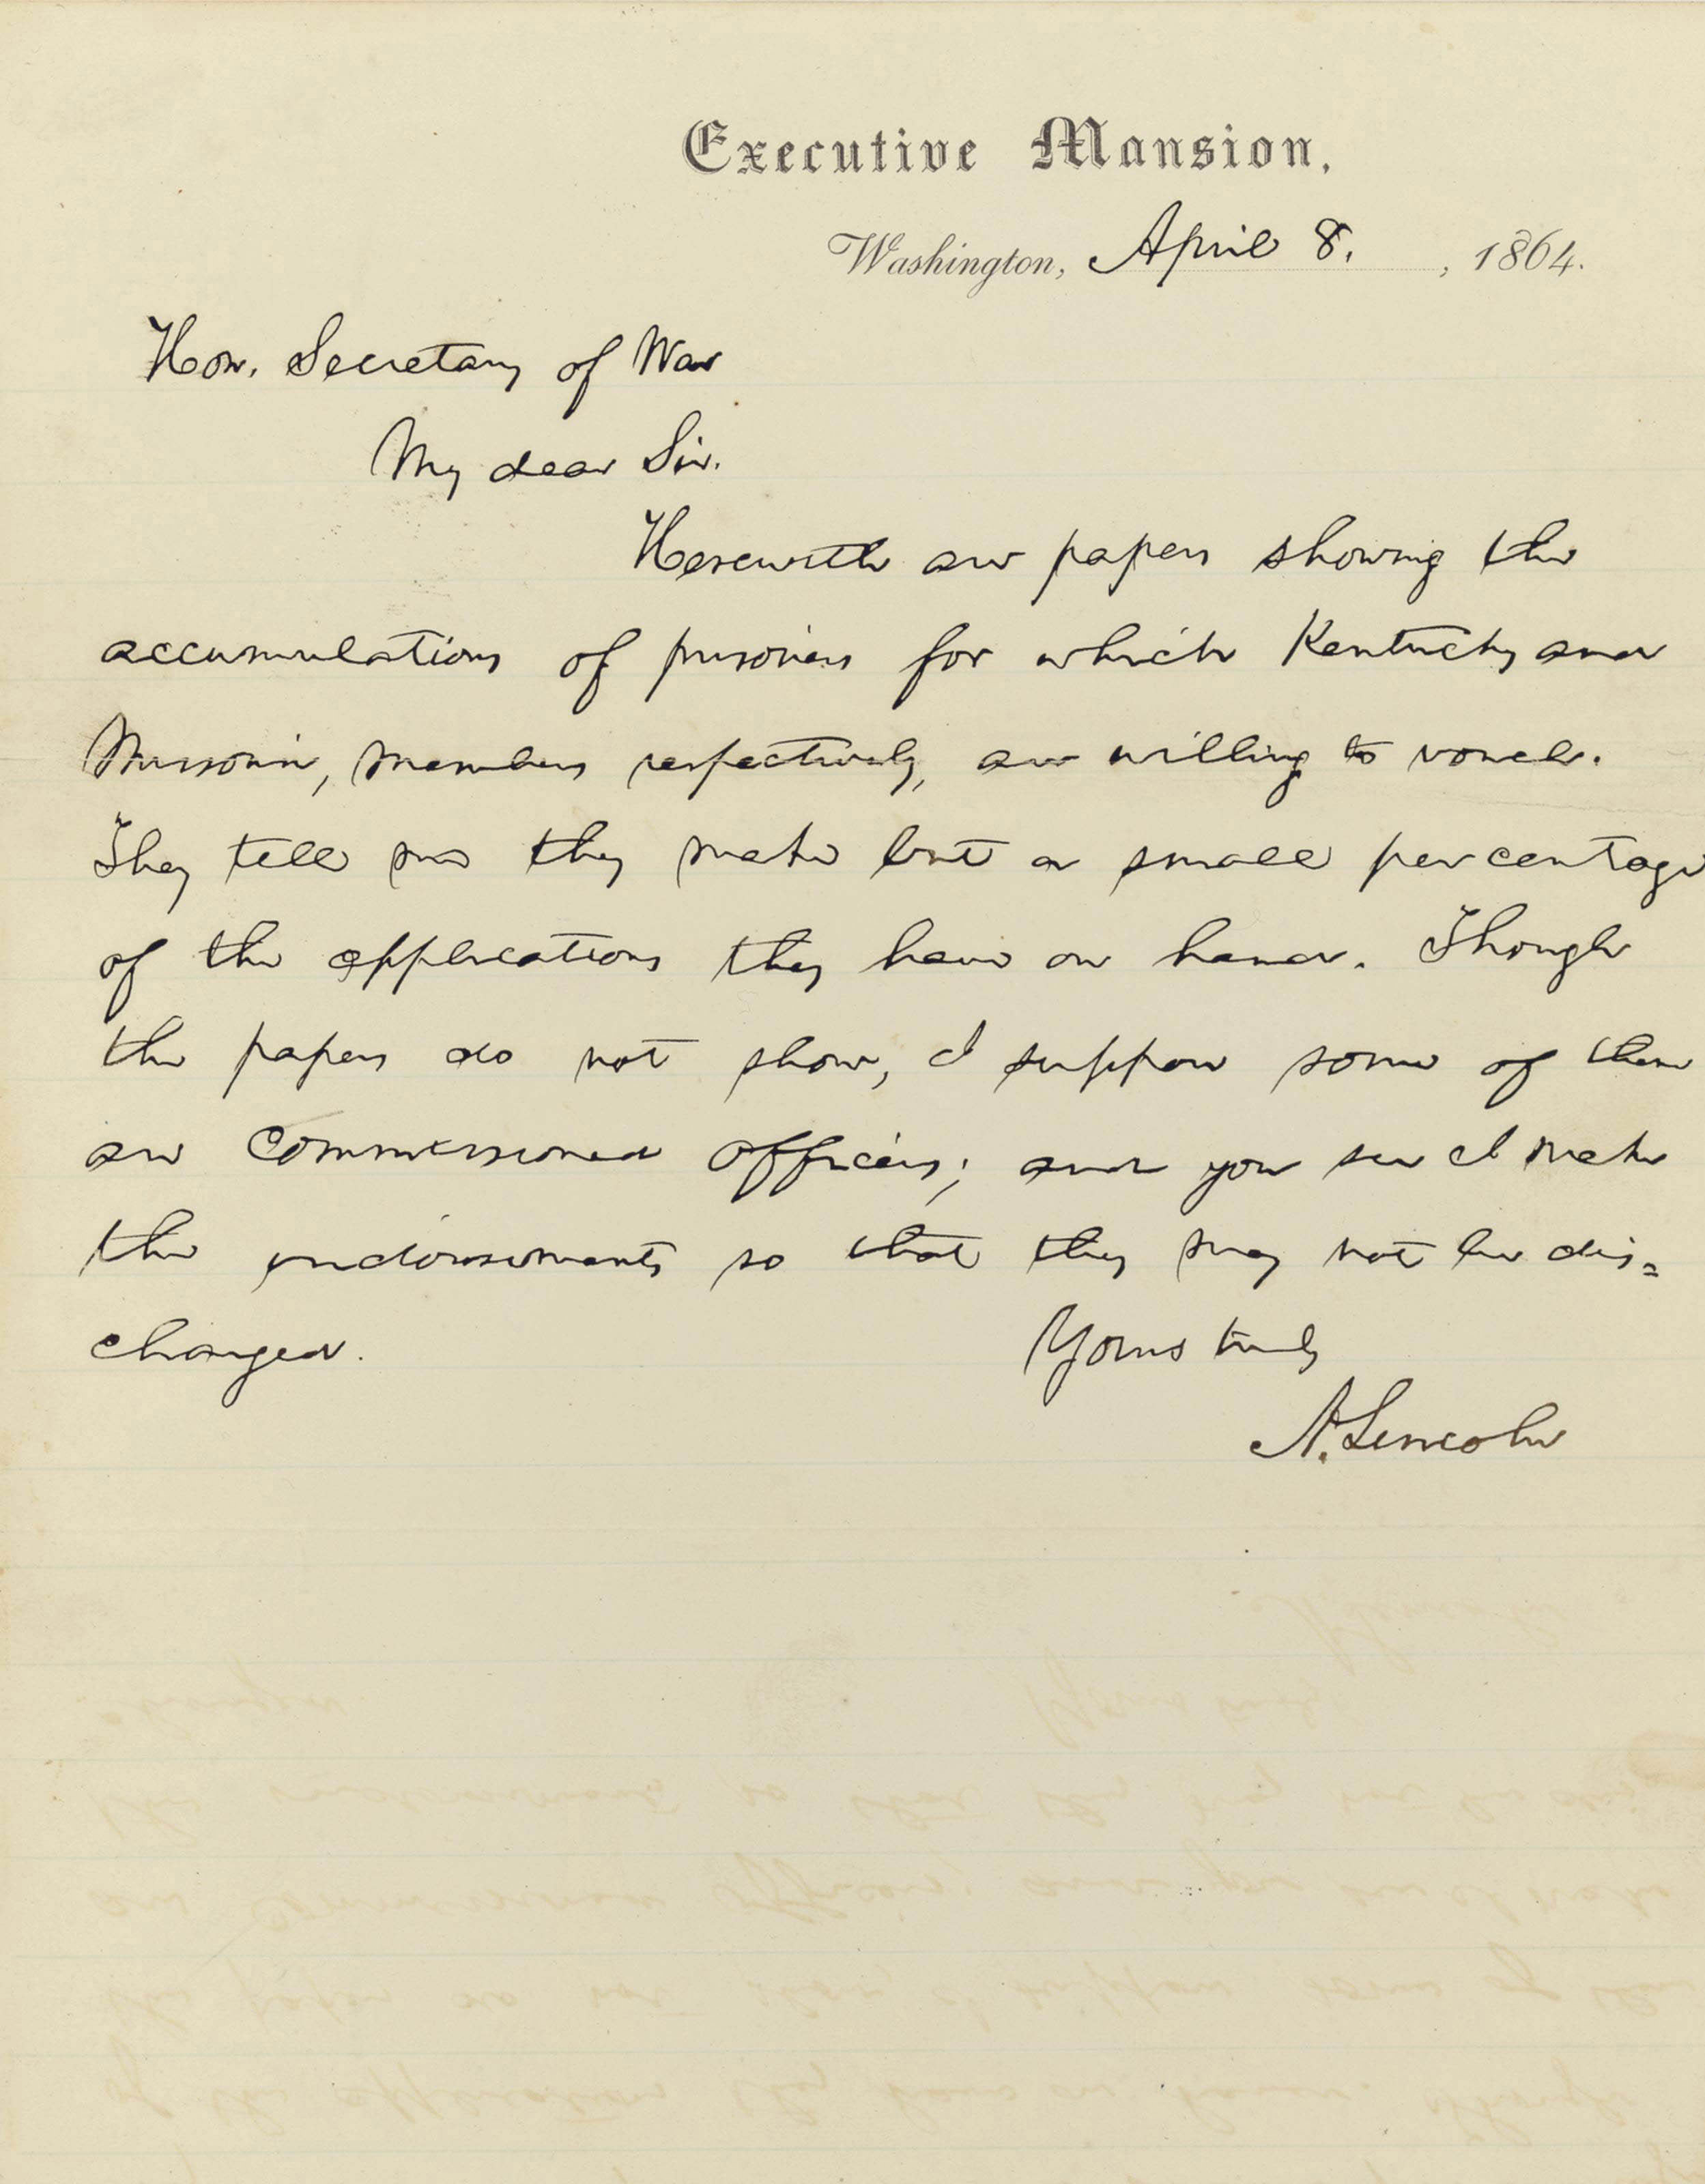 Executive Mansion,
Washington, April 8. , 1864.
Hon. Secretary of War
My dear Sir.
Herewith are papers showing the
accumulations of prisoners for which Kentucky and
Missouri, members respectively, are willing to vouch.
They tell me they make but a small percentage
of the applications they have on hand. Though
the papers do not show, I suppose some of them
are commissioned officers; and you see I make
the endorsements so that they may not be dis=
charged.
Yours truly
A. Lincoln